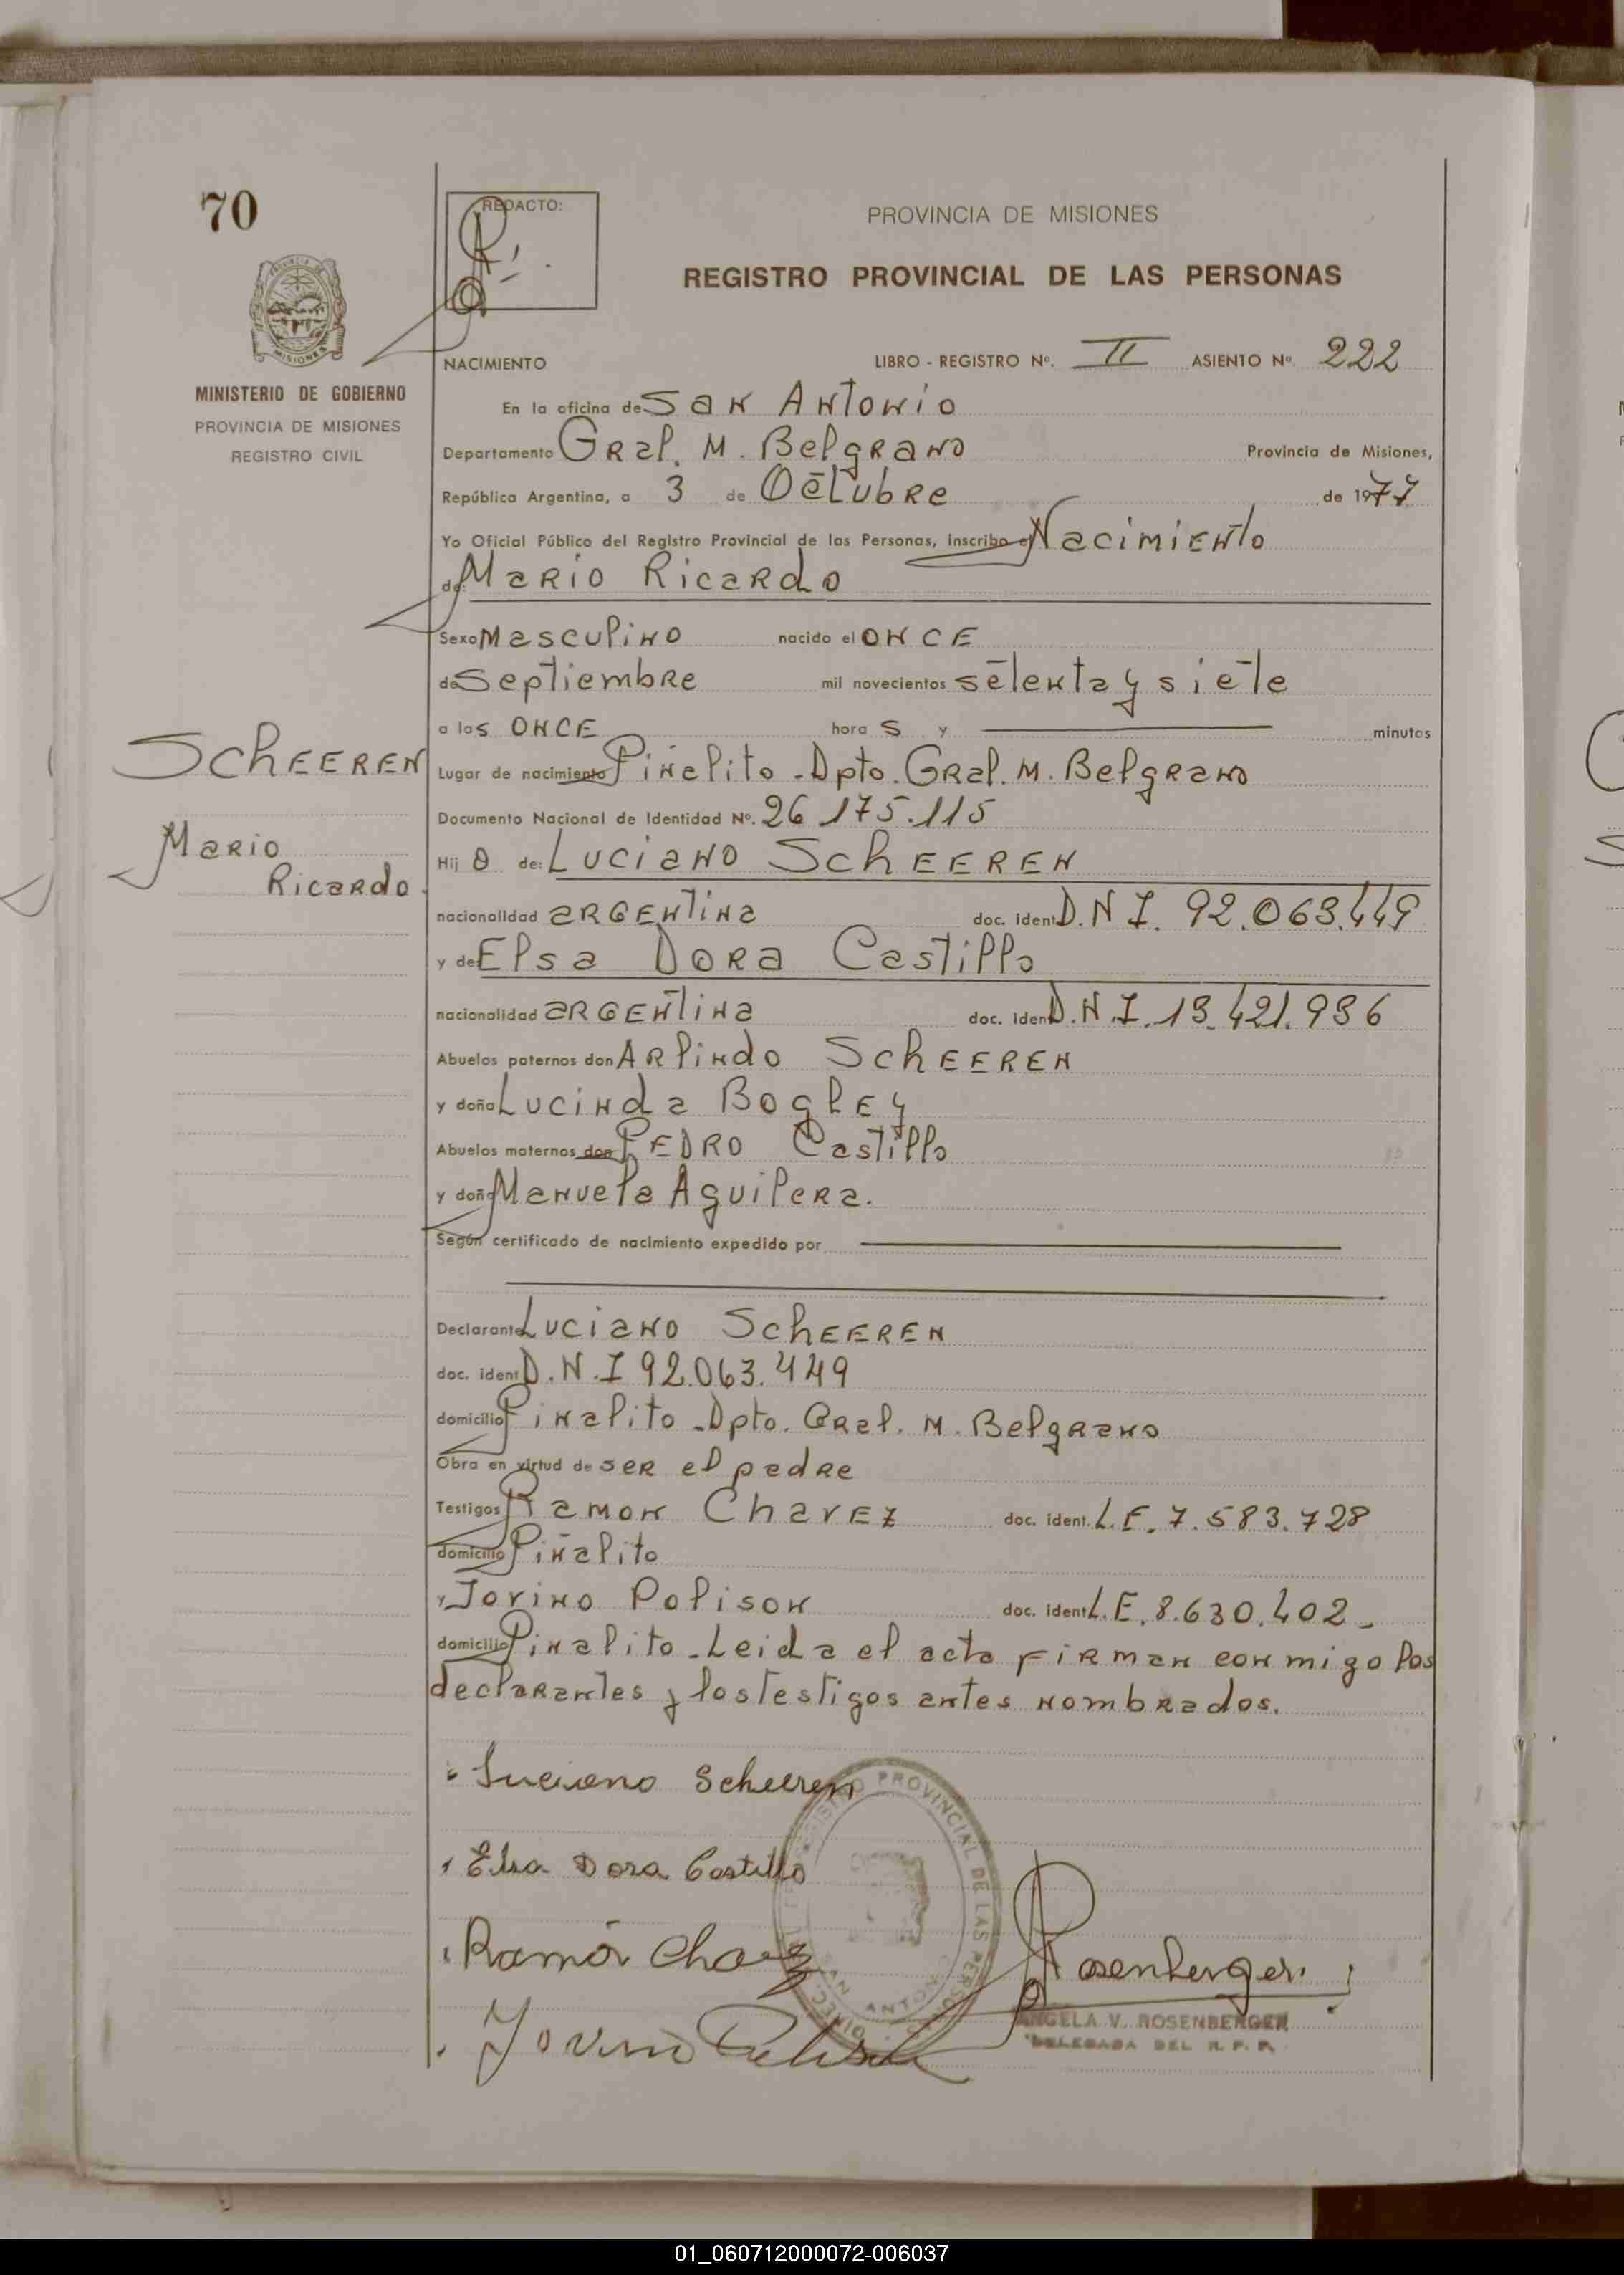 70
REDACTO:
PROVINCIA DE MISIONES
REGISTRO PROVINCIAL DE LAS PERSONAS
MISIONES
MINISTERIO DE GOBIERNO
PROVINCIA DE MISIONES
REGISTRO CIVIL
NACIMIENTO LIBRO - REGISTRO Nº. II ASIENTO Nº. 222
En la oficina de San Antonio
Departamento Gral. M. Belgrano Provincia de Misiones,
República Argentina, a 3 de Octubre de 1977
Yo Oficial Público del Registro Provincial de las Personas, inscribo el Nacimiento
de: Mario Ricardo
Sexo Masculino nacido el ONCE
de Septiembre mil novecientos setenta y siete
a las ONCE hora s y minutos
Lugar de nacimiento Piñalito - Dpto. Gral. M. Belgrano
Documento Nacional de Identidad Nº. 26 175.115
SCHEEREN
Mario
Ricardo
Hij o de: Luciano SCHEEREN
nacionalidad argentina doc. ident. D.N.I. 92.063.449
y de: Elsa Dora Castillo
nacionalidad argentina doc. ident. D.N.I. 13.421.936
Abuelos paternos don Arlindo SCHEEREN
y doña Lucinda Bogley
Abuelos maternos don Pedro Castillo
y doña Manuela Aguilera.
Según certificado de nacimiento expedido por
Declarante Luciano SCHEEREN
doc. ident. D.N.I 92.063.449
domicilio Piñalito - Dpto. Gral. M. Belgrano
Obra en virtud de ser el padre
Testigos Ramon Chavez doc. ident. L.E. 7.583.728
domicilio Piñalito
y Jovino Polison doc. ident. L.E. 8.630.402 -
domicilio Piñalito - Leida el acta firman conmigo los
declarantes y los testigos antes nombrados.
Luciano Scheeren
Elsa Dora Castillo
Ramón Chavez
Jovino
Rosenberger
REGISTRO PROVINCIAL DE LAS PERSONAS
SAN ANTONIO
ANGELA V. ROSENBERGER
DELEGADA DEL R. P. P.
01_060712000072-006037